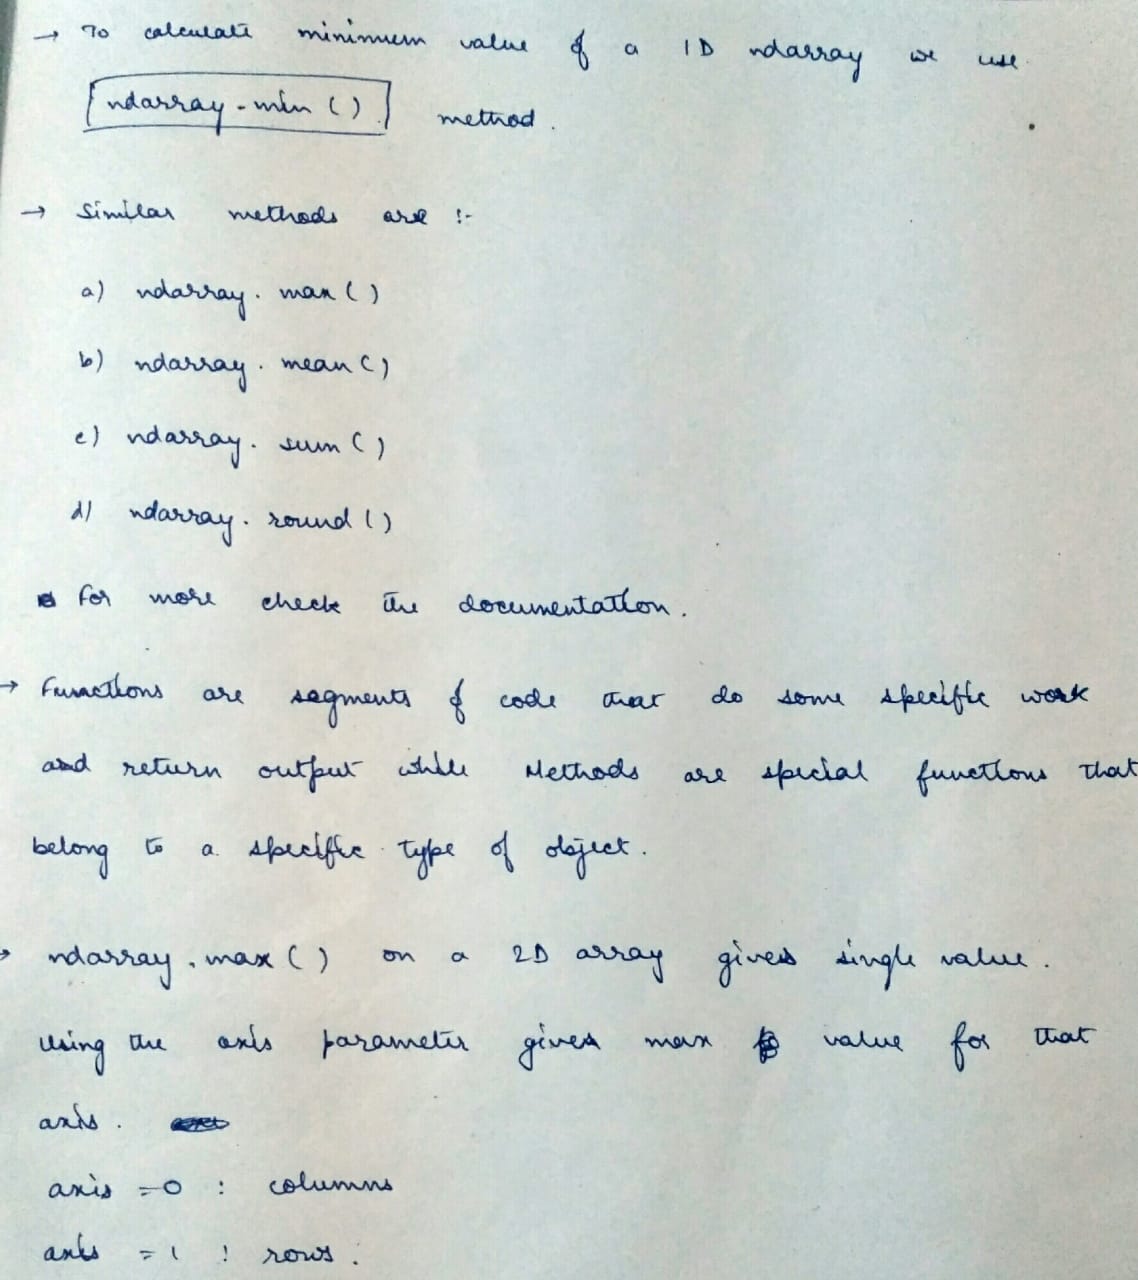 → To calculate minimum value of a 1D ndarray we use
ndarray.min() method.
→ Similar methods are :-
a) ndarray.max()
b) ndarray.mean()
c) ndarray.sum()
d) ndarray.round()
For more check the documentation.
→ Functions are segments of code that do some specific work
and return output while Methods are special functions that
belong to a specific type of object.
→ ndarray.max() on a 2D array gives single value.
Using the axis parameter gives max value for that
axis.
axis = 0 : columns
axis = 1 : rows.